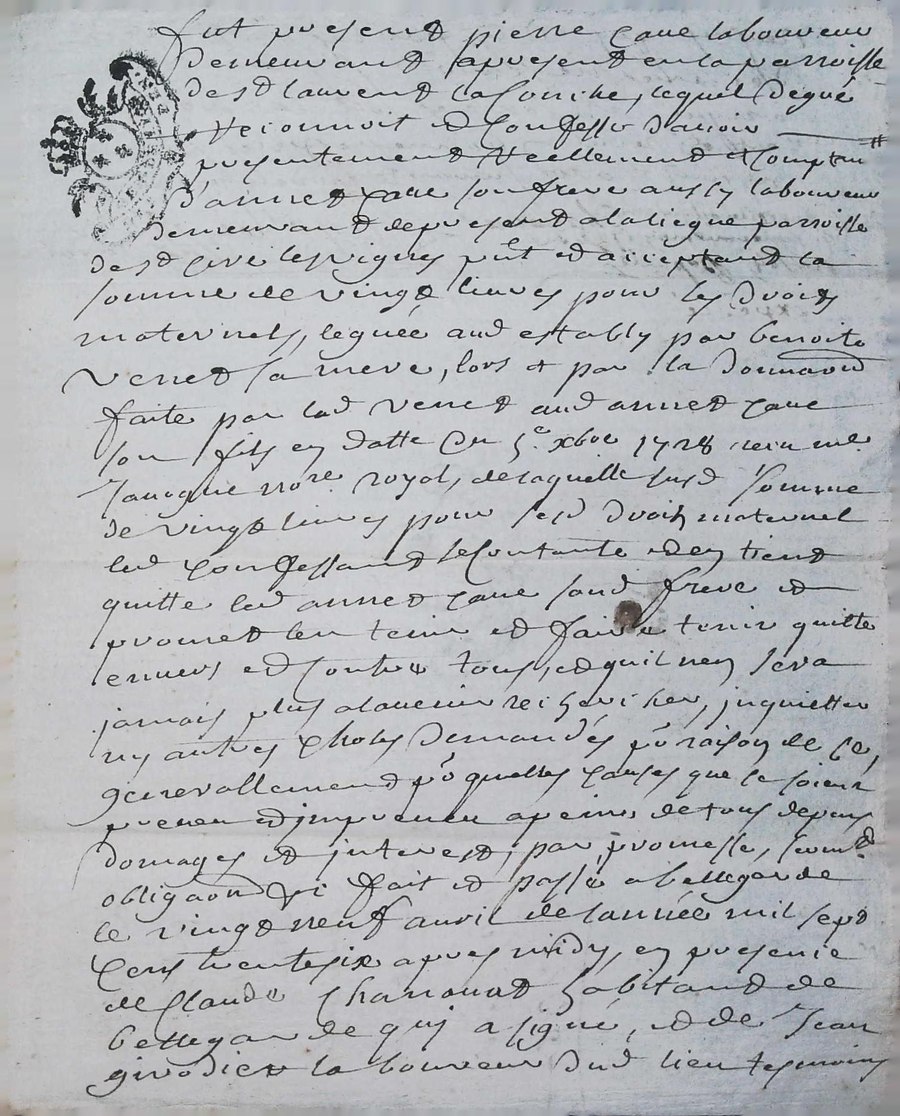 fut present pierre caue laboureur
demeurant a present en la parroisse
de st laurent la Conche, lequel de gré
reconnoit et Confesse d'auoir
presentement reellement et Comptant
d'annet caue son frere aussy laboureur
demeurant de present a la parroisse
de st les vignes pnt et acceptant la
somme de vingt liures pour les droits
maternels, leguée aud establis par benoite
venet sa mere, lors et par la donnaon
faite par lad venet aud annet caue
son fils en datte du 5e xbre 1728 receu me
Janogne nore royal, de laquelle susd somme
de vingt liures pour sesd droits maternel
led Confessant se Contante et en tient
quitte led annet caue sond frere et
promet len tenir et faire tenir quitte
enuers et Contre tous, et quil nen sera
jamais plus alauenir recherchez, jnquietter
ny autres choses demandés pr raison de ce,
generallement pr quelles causes que ce soient
preueu et jmpreueu a peine de tous depens
domages et jnterest, par promesse, soumon
obligaon fait et passé a bellegarde
le vingt neuf auril de lannée mil sept
cens trente six apres midy, en presence
de Claude habitant de
bellegarde qui a signé, et de Jean
girodier laboureur dud lieu tesmoins